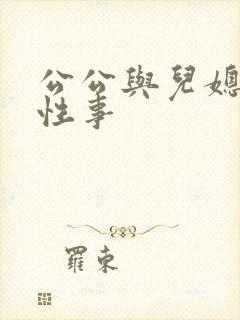 公公與兒媳
性事
羅東